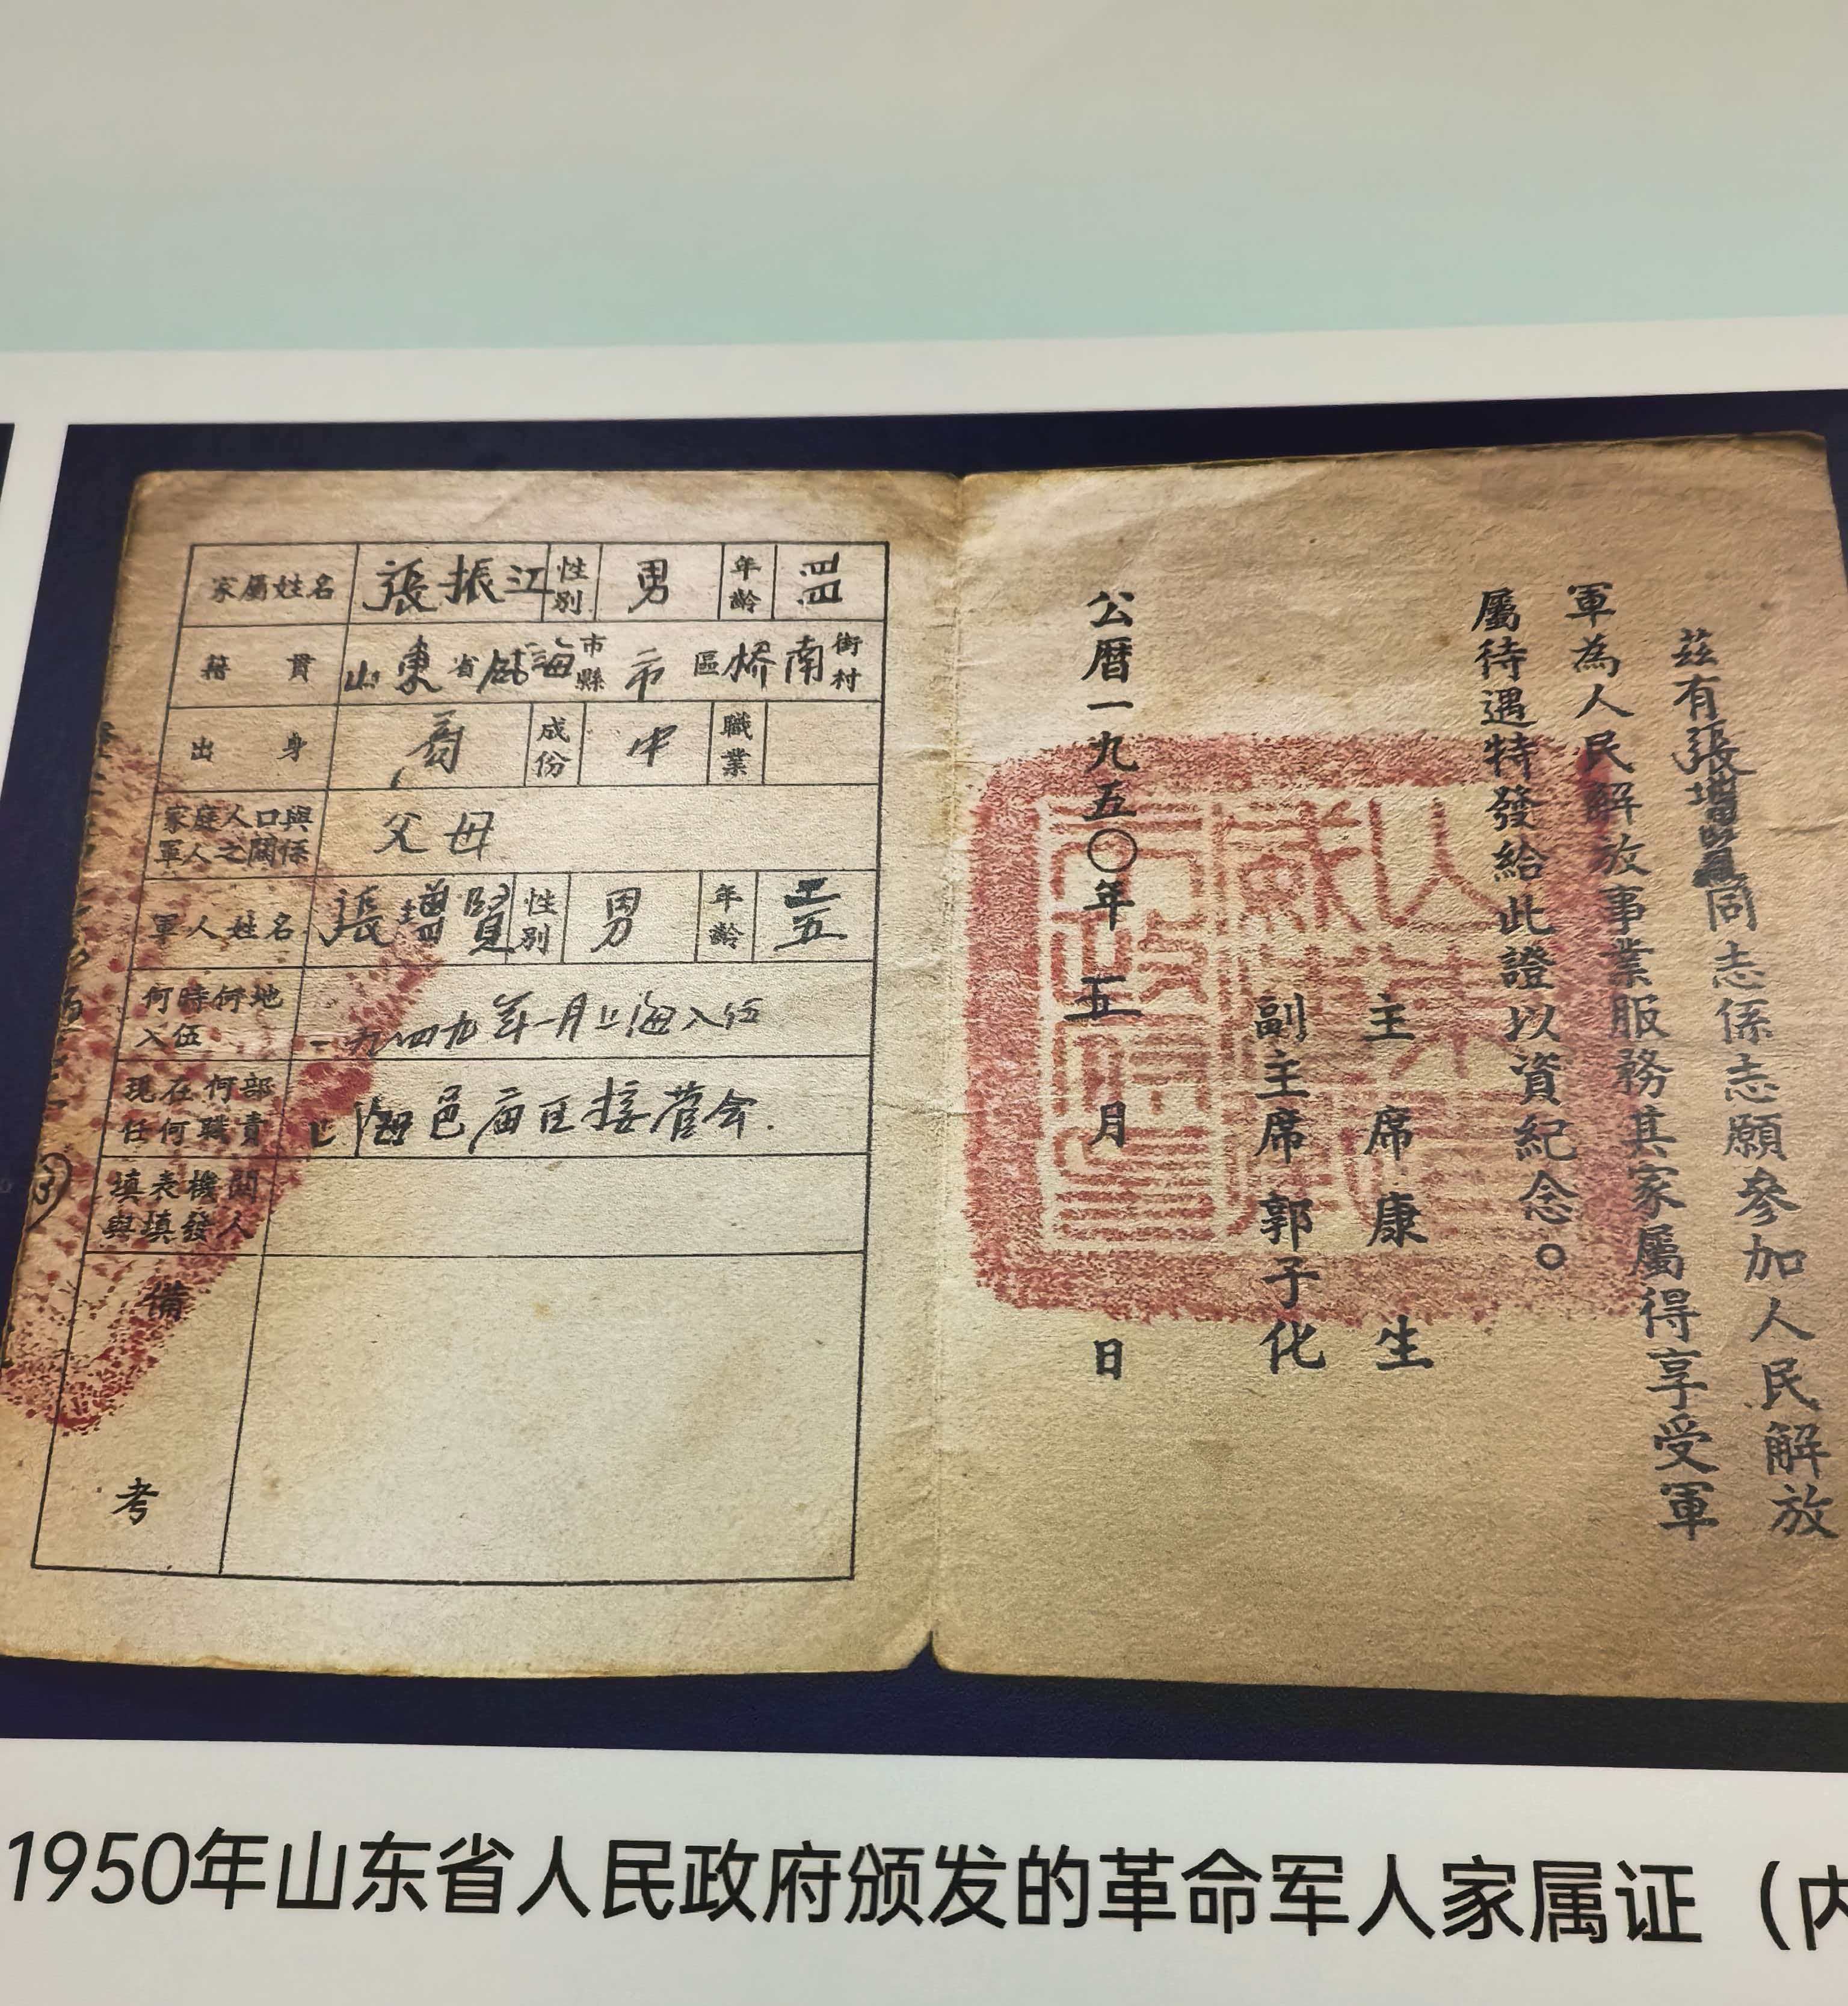 茲有張增賢同志係志願參加人民解放
軍為人民解放事業服務其家屬得享受軍
屬待遇特發給此證以資紀念。
主席康生
副主席郭子化
公曆一九五〇年五月日
家屬姓名 張振江 性別 男 年齡
籍貫 山東省威海市縣市區桥南街村
出身 成份 中 職業
家庭人口與軍人之關係 父母
軍人姓名 張增賢 性別 男 年齡
何時何地入伍 一九四九年一月上海入伍
現在何部任何職責 上海邑庙区接管会.
填表機關與填發人
備考
1950年山东省人民政府颁发的革命军人家属证（内